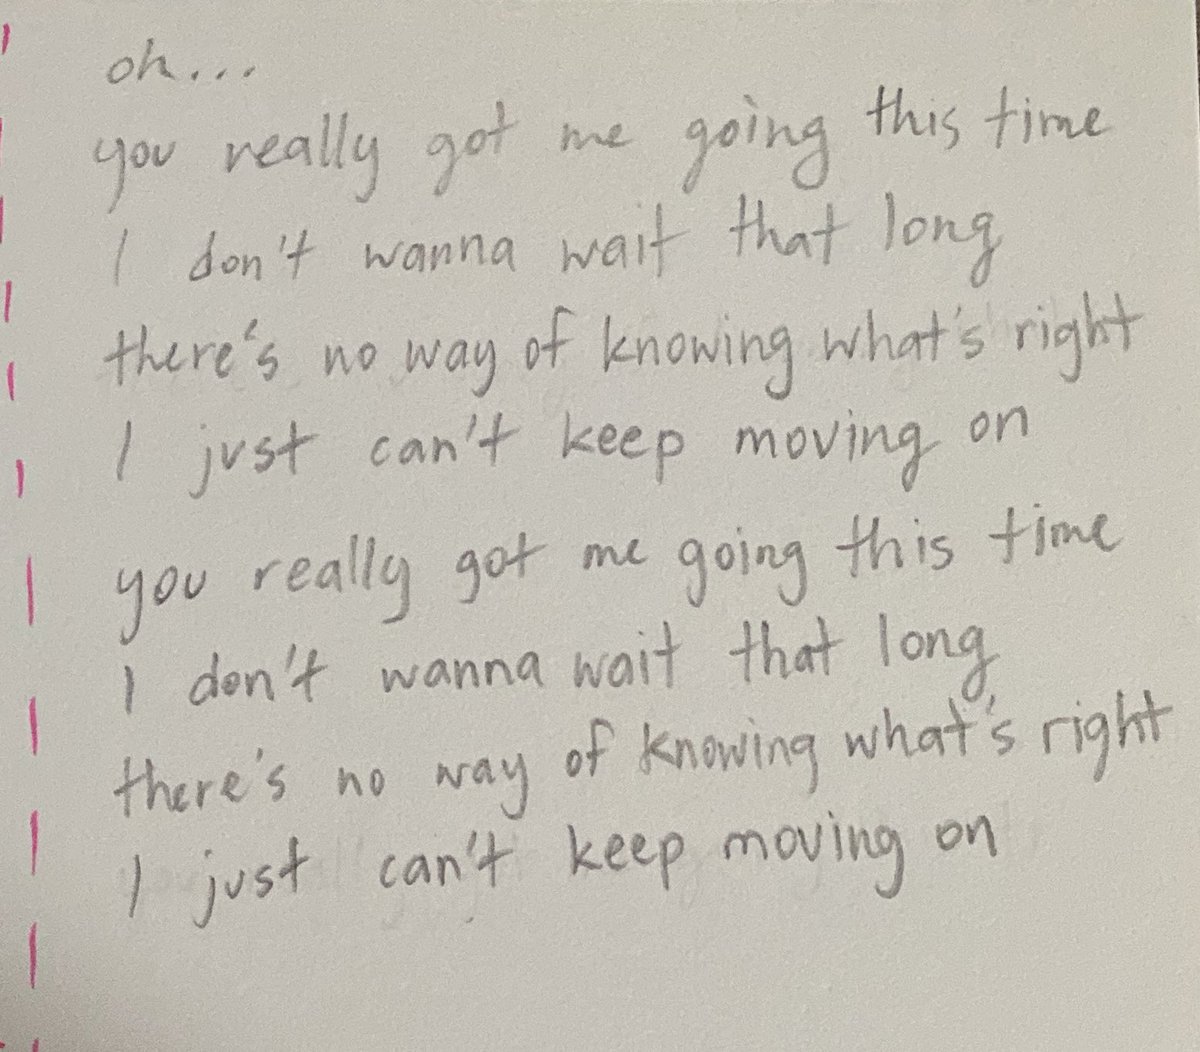 oh...
you really got me going this time
I don't wanna wait that long
there's no way of knowing what's right
I just can't keep moving on
you really got me going this time
I don't wanna wait that long
there's no way of knowing what's right
I just can't keep moving on